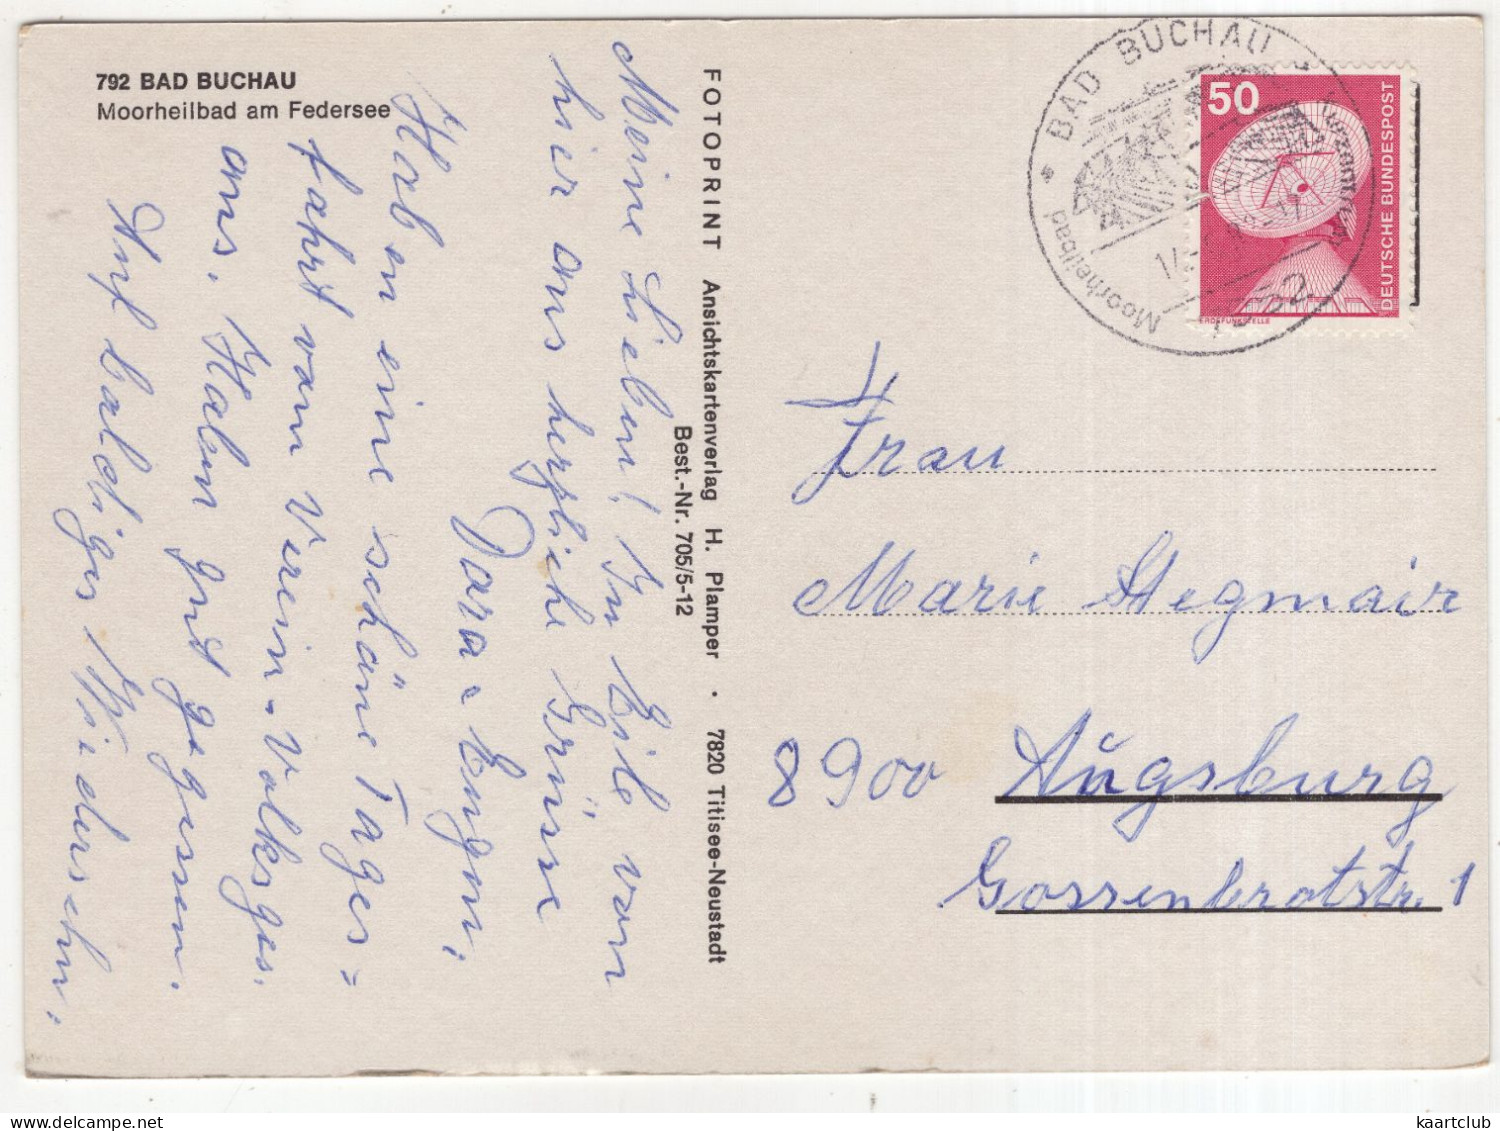 792 BAD BUCHAU
Moorheilbad am Federsee
Meine Lieben! In Eile von
hier aus herzliche Grüsse
Dora - Eugen.
Haben eine schöne Tages=
fahrt vom Verein-Volksges.
aus. Haben gut gegessen.
Auf baldiges Wiedersehn.
FOTOPRINT Ansichtskartenverlag H. Plamper · 7820 Titisee-Neustadt
Best.-Nr. 705/5-12
BAD BUCHAU
Moorheilbad
7952
50
DEUTSCHE BUNDESPOST
ERDEFUNKSTELLE
Frau
Marie Stegmair
8900 Augsburg
Gossenbrotstr. 1
kaartclub